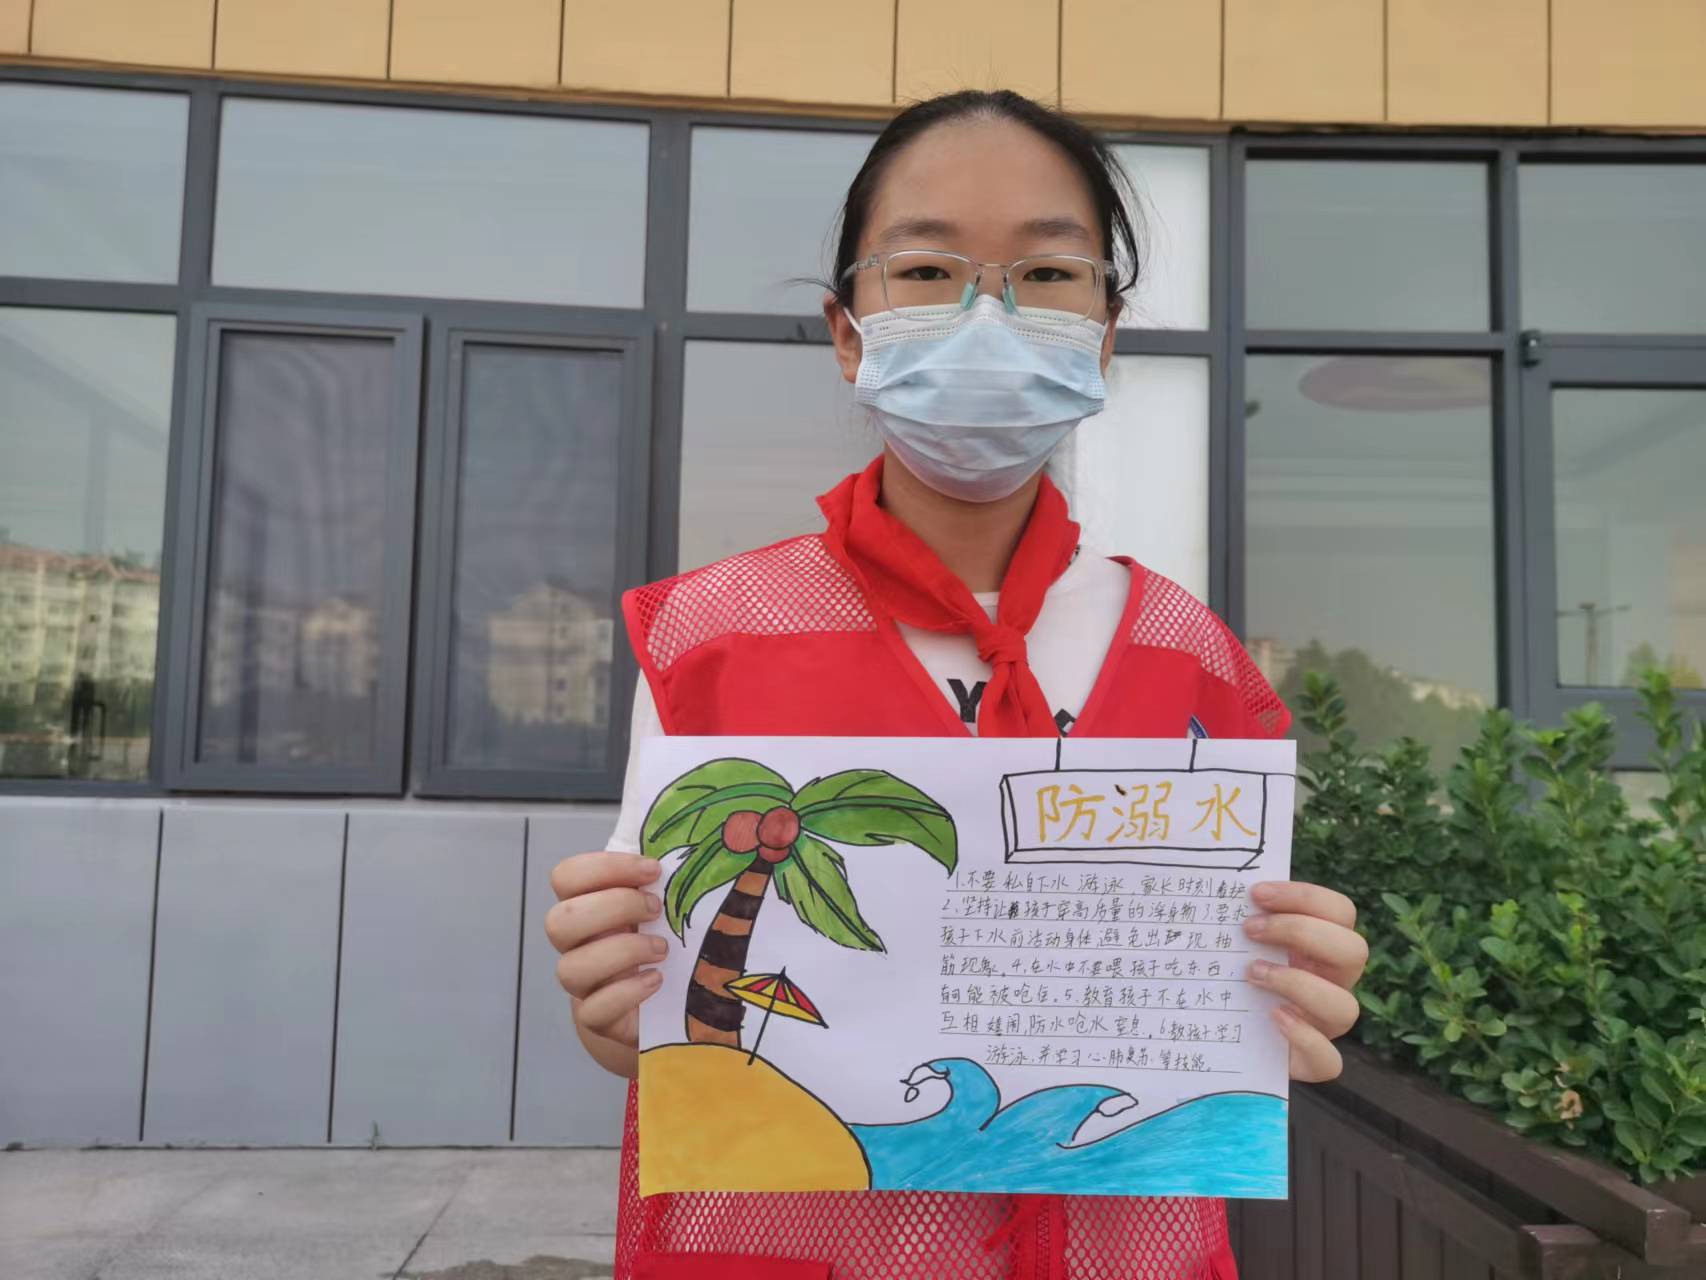 防溺水
1.不要私自下水游泳,家长时刻看护
2.坚持让孩子穿高质量的浮身物3.要求
孩子下水前活动身体,避免出现抽
筋现象。4.在水中不要喂孩子吃东西,
有可能被呛住。5.教育孩子不在水中
互相嬉闹,防水呛水窒息。6.教孩子学习
游泳,并学习心肺复苏、等技能。